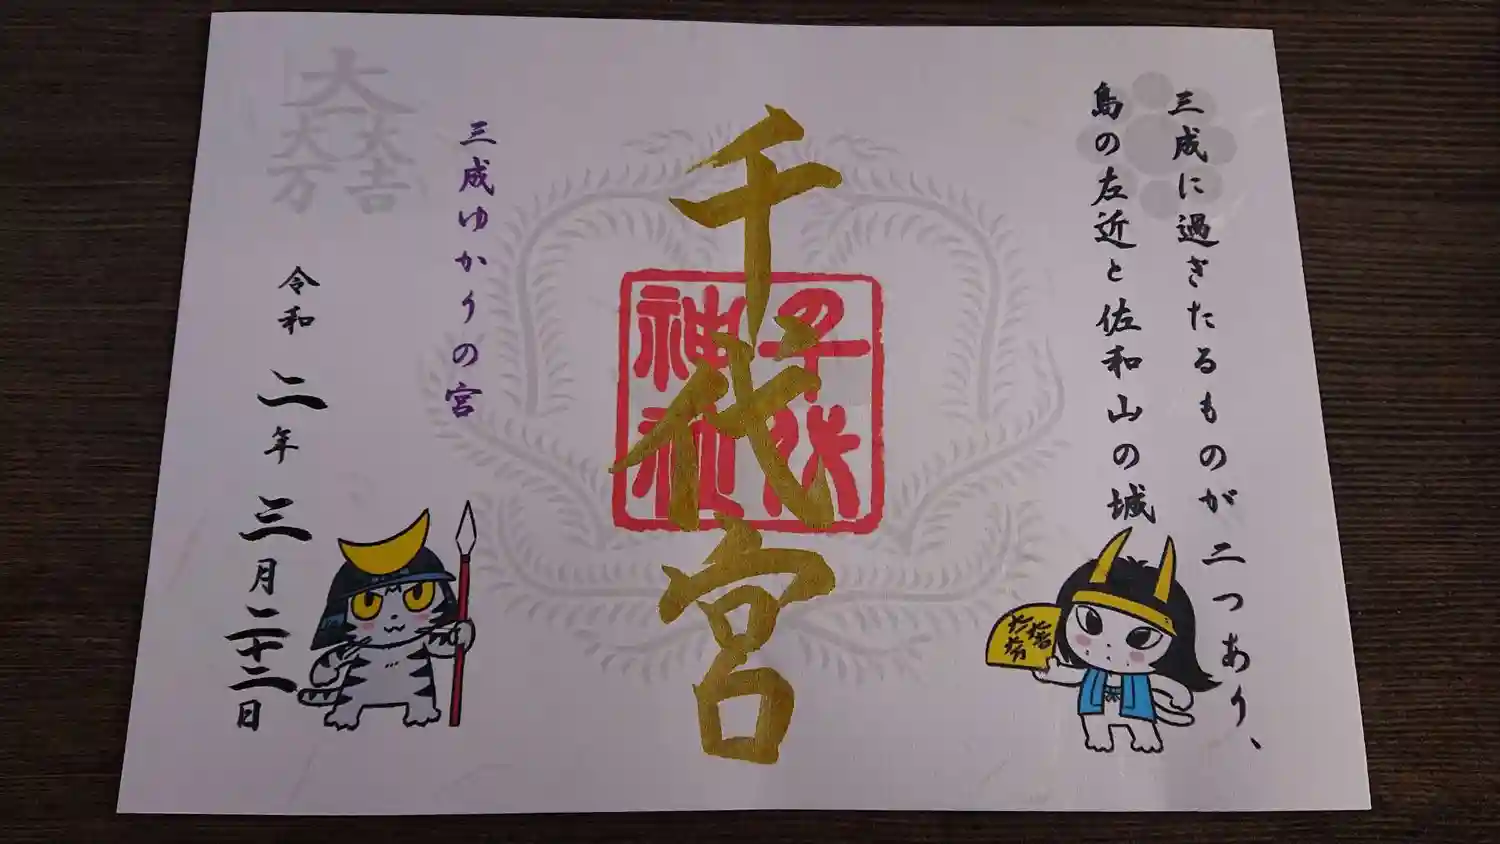 三成に過ぎたるものが二つあり、
島の左近と佐和山の城
千代宮
千代
神社
三成ゆかりの宮
大
一大
大吉
万
令和二年三月二十二日